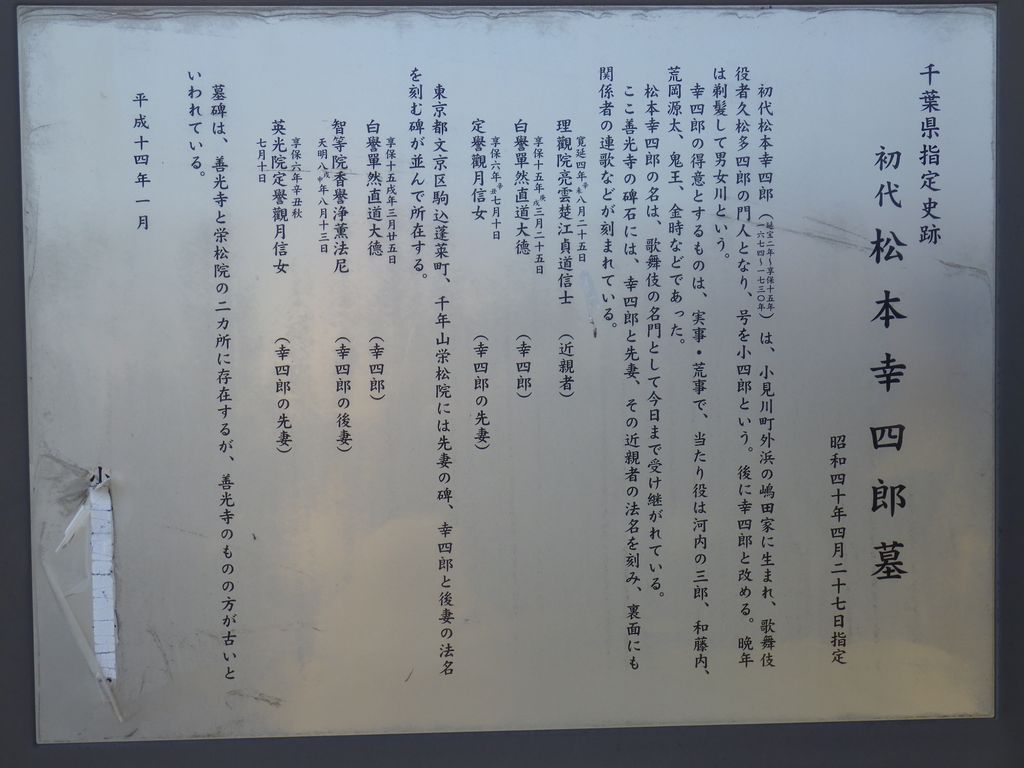 千葉県指定史跡
初代 松本幸四郎墓
昭和四十年四月二十七日指定
初代松本幸四郎（延宝二年～享保十五年 一六七四～一七三〇年）は、小見川町外浜の嶋田家に生まれ、歌舞伎
役者久松多四郎の門人となり、号を小四郎という。後に幸四郎と改める。晩年
は剃髪して男女川という。
幸四郎の得意とするものは、実事・荒事で、当たり役は河内の三郎、和藤内、
荒岡源太、鬼王、金時などであった。
松本幸四郎の名は、歌舞伎の名門として今日まで受け継がれている。
ここ善光寺の碑石には、幸四郎と先妻、その近親者の法名を刻み、裏面にも
関係者の連歌などが刻まれている。
寛延四年辛未八月二十五日
理觀院亮雲楚江貞道信士 （近親者）
享保十五年庚戌三月二十五日
白譽單然直道大徳 （幸四郎）
享保六年辛丑七月十日
定譽觀月信女 （幸四郎の先妻）
東京都文京区駒込蓬莱町、千年山栄松院には先妻の碑、幸四郎と後妻の法名
を刻む碑が並んで所在する。
享保十五戌年三月廿五日
白譽單然直道大徳 （幸四郎）
天明八戊申年八月十三日
智等院香譽浄薫法尼 （幸四郎の後妻）
享保六年辛丑秋
七月十日
英光院定譽觀月信女 （幸四郎の先妻）
墓碑は、善光寺と栄松院の二カ所に存在するが、善光寺のものの方が古いと
いわれている。
平成十四年一月
小